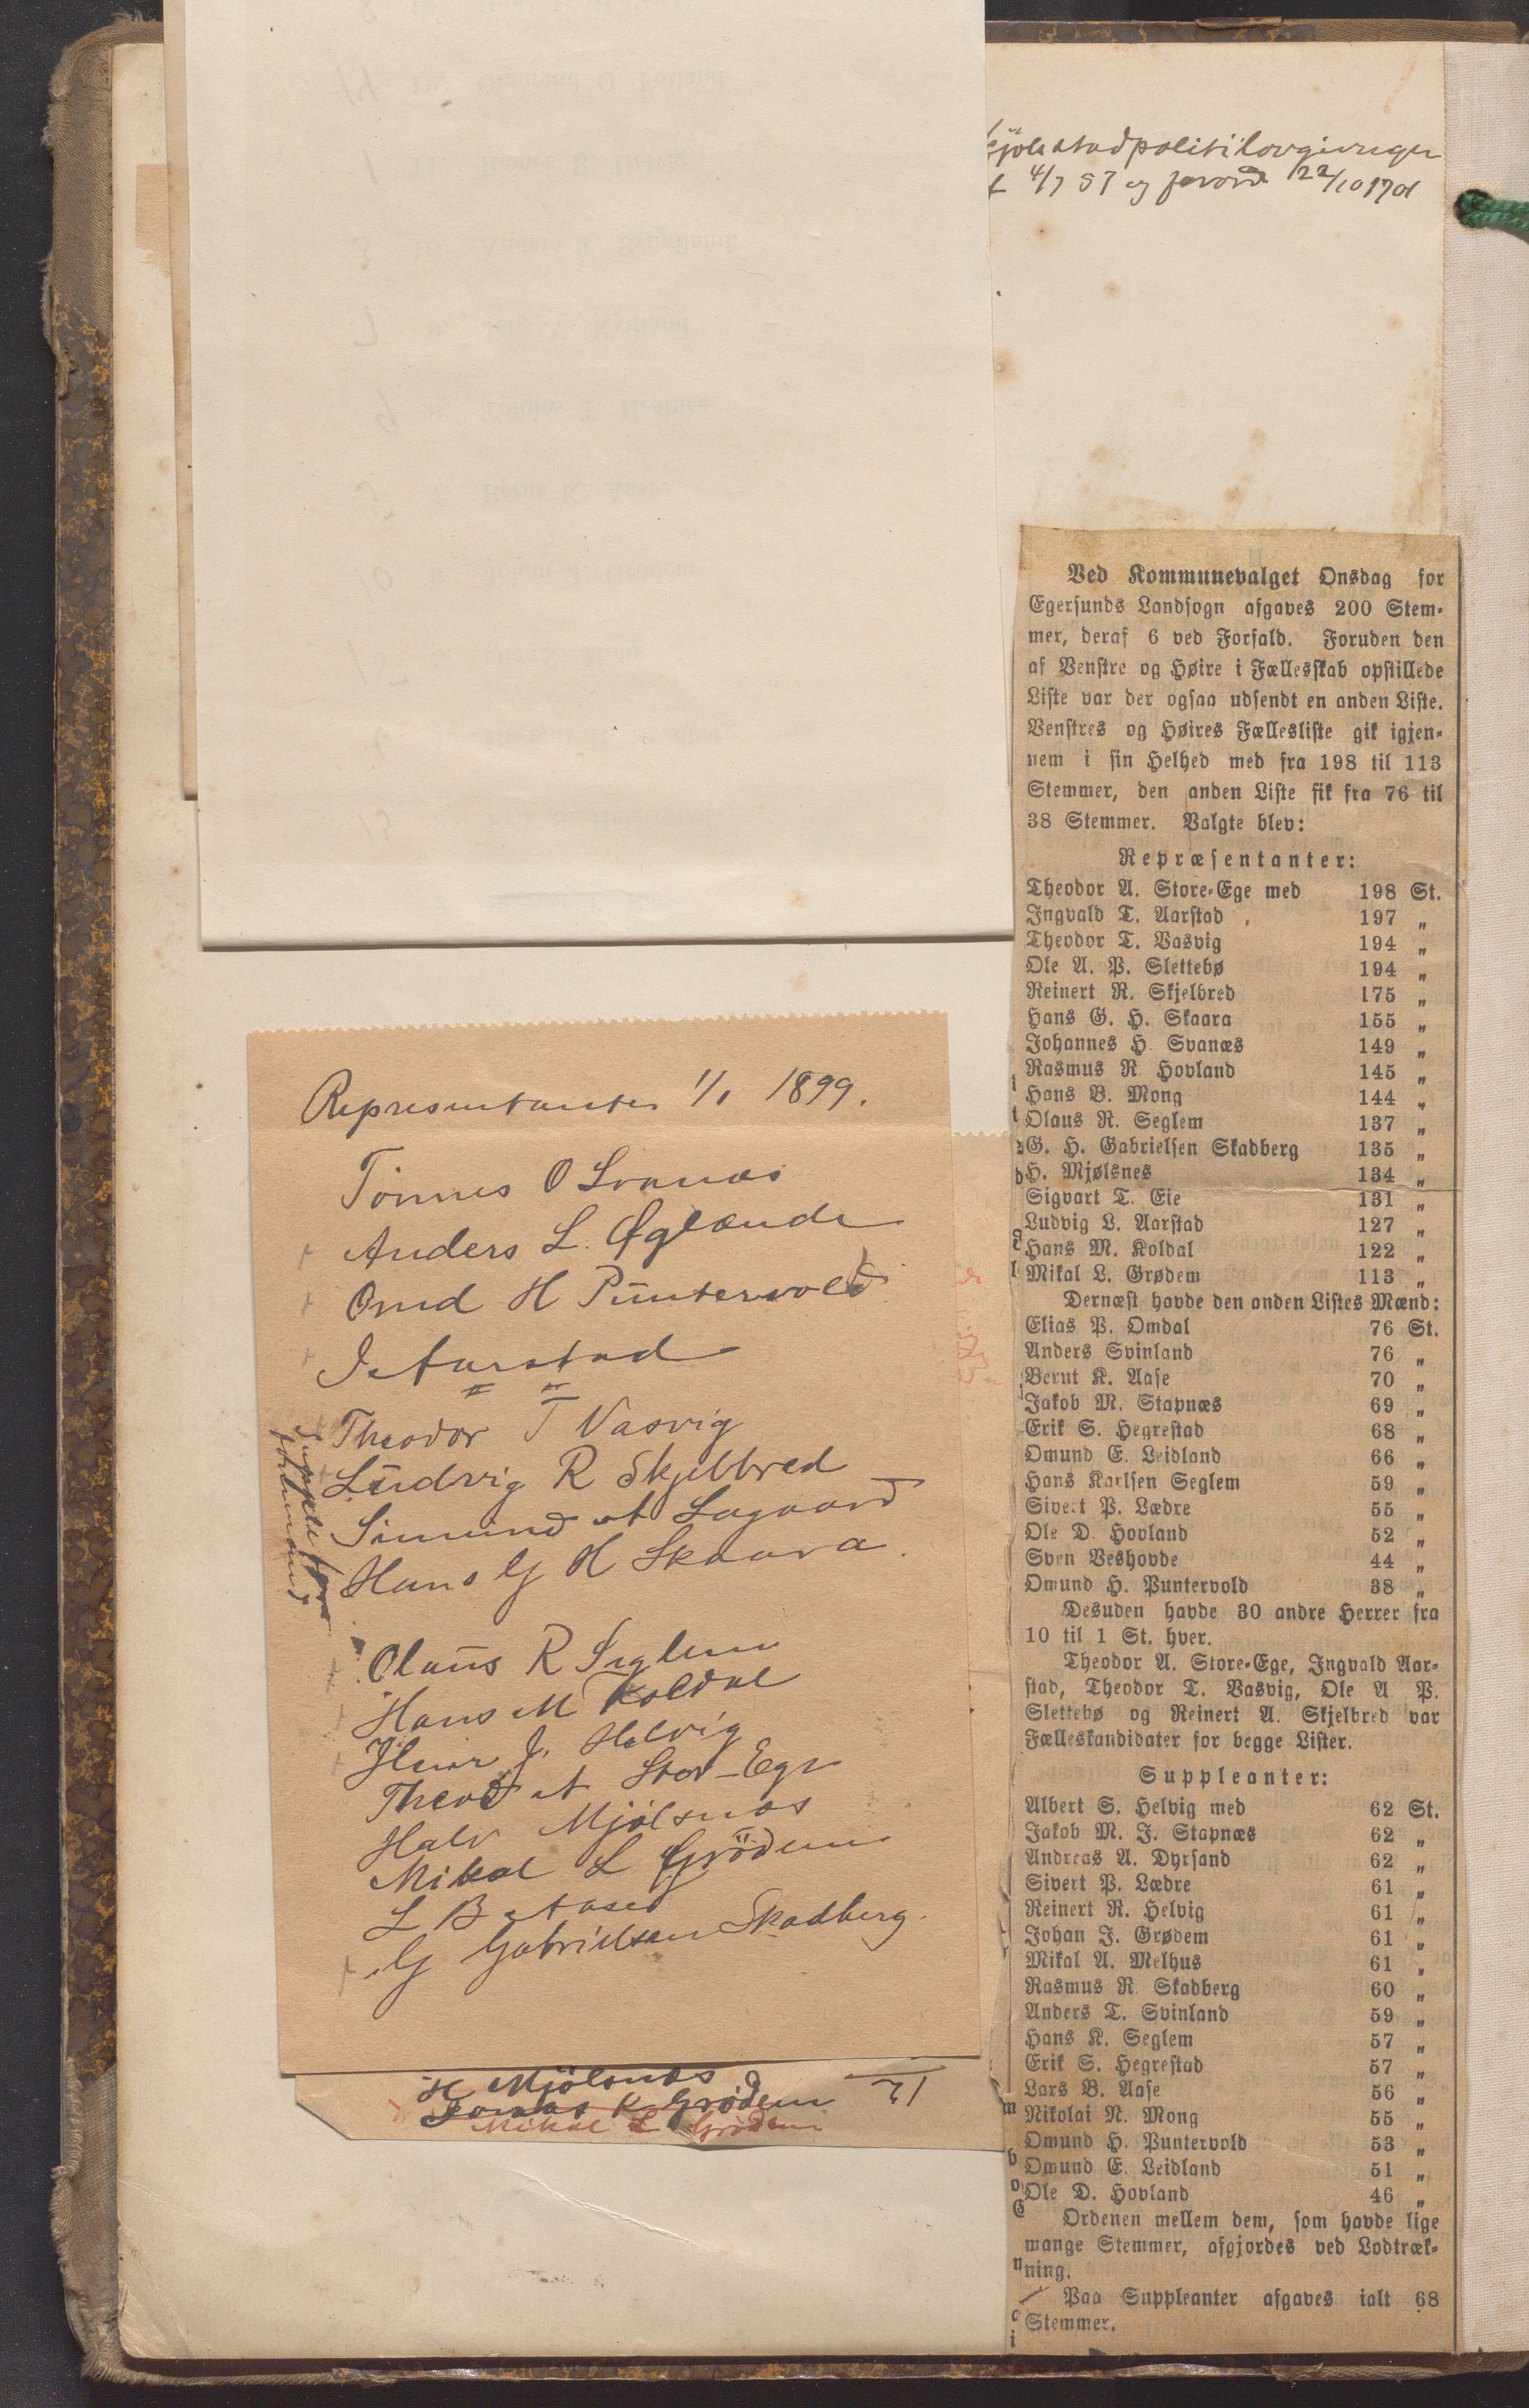 kjøbstadpolitilovgivngen
4/7 87 og forord 22/10 1701
Representanter 1/1 1899.
Tönnes O Svanæs
Anders L. Øglænde
Omd H Puntervold
I. Aarstad
Theodor T Vasvig
Ludvig R Skjelbred
Simund A Lagaard
Hans G H Skaara
Supple for formand
Olaus R Seglem
Hans M Koldal
J. Helvig
Theod A Stor-Ege
Halv Mjölsnæs
Mikal L Grödem
L B Aase
G Gabrielsen Skadberg.
H Mjölsnæs
Tomas K Grödem
Mikal L Grödem
12
Ved Kommunevalget Onsdag for
Egersunds Landsogn afgaves 200 Stem-
mer, deraf 6 ved Forfald. Foruden den
af Venstre og Høire i Fællesskab opstillede
Liste var der ogsaa udsendt en anden Liste.
Venstres og Høires Fællesliste gik igjen-
nem i sin Helhed med fra 198 til 113
Stemmer, den anden Liste fik fra 76 til
38 Stemmer. Valgte blev:
Repræsentanter:
Theodor A. Store-Ege med 198 St.
Ingvald T. Aarstad 197 „
Theodor T. Vasvig 194 „
Ole A. P. Slettebø 194 „
Reinert R. Skjelbred 175 „
Hans G. H. Skaara 155 „
Johannes H. Svanæs 149 „
Rasmus R Hovland 145 „
Hans B. Mong 144 „
Olaus R. Seglem 137 „
G. H. Gabrielsen Skadberg 135 „
H. Mjølsnes 134 „
Sigvart T. Eie 131 „
Ludvig L. Aarstad 127 „
Hans M. Koldal 122 „
Mikal L. Grødem 113 „
Dernæst havde den anden Listes Mænd:
Elias P. Omdal 76 St.
Anders Svinland 76 „
Bernt K. Aase 70 „
Jakob M. Stapnæs 69 „
Erik S. Hegrestad 68 „
Omund E. Leidland 66 „
Hans Karlsen Seglem 59 „
Sivert P. Lædre 55 „
Ole D. Hovland 52 „
Sven Veshovde 44 „
Omund H. Puntervold 38 „
Desuden havde 30 andre Herrer fra
10 til 1 St. hver.
Theodor A. Store-Ege, Ingvald Aar-
stad, Theodor T. Vasvig, Ole A P.
Slettebø og Reinert A. Skjelbred var
Fælleskandidater for begge Lister.
Suppleanter:
Albert S. Helvig med 62 St.
Jakob M. J. Stapnæs 62 „
Andreas A. Dyrsand 62 „
Sivert P. Lædre 61 „
Reinert R. Helvig 61 „
Johan J. Grødem 61 „
Mikal A. Melhus 61 „
Rasmus R. Skadberg 60 „
Anders T. Svinland 59 „
Hans K. Seglem 57 „
Erik S. Hegrestad 57 „
Lars B. Aase 56 „
Nikolai N. Mong 55 „
Omund H. Puntervold 53 „
Omund E. Leidland 51 „
Ole D. Hovland 46 „
Ordenen mellem dem, som havde lige
mange Stemmer, afgjordes ved Lodtræk-
ning.
Paa Suppleanter afgaves ialt 68
Stemmer.